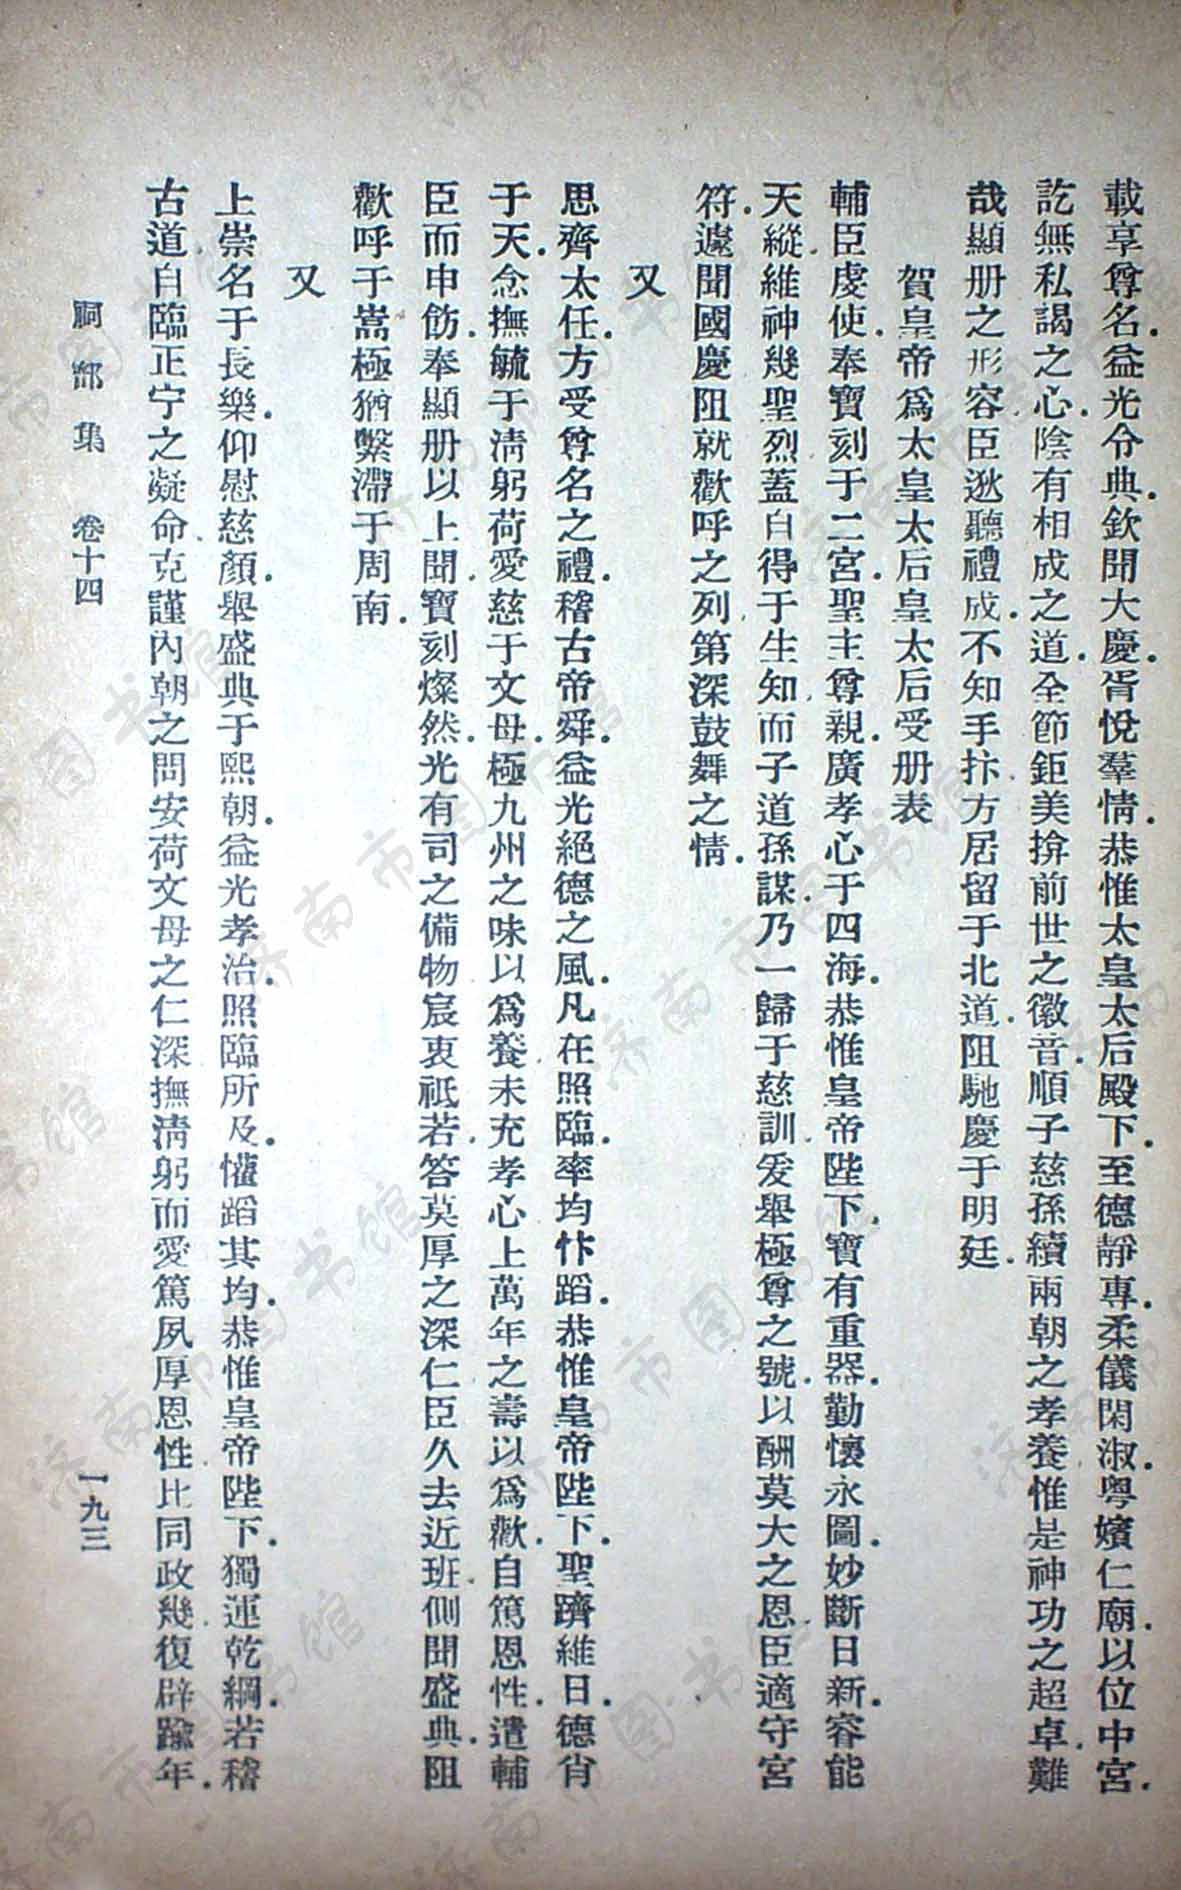 載享尊名.益光令典.欽聞大慶.胥悅羣情.恭惟太皇太后殿下.至德靜專.柔儀閑淑.粤嬪仁廟.以位中宮.
訖無私謁之心.陰有相成之道.全節鉅美揜前世之徽音.順子慈孫續兩朝之孝養惟是神功之超卓.難
哉顯册之形容.臣逖聽禮成.不知手抃.方居留于北道.阻馳慶于明廷.
賀皇帝爲太皇太后皇太后受册表
輔臣虔使.奉寶刻于二宮.聖主尊親.廣孝心于四海.恭惟皇帝陛下.寶有重器.勤懷永圖.妙斷日新.睿能
天縱.維神幾聖烈蓋自得于生知而子道孫謀.乃一歸于慈訓.爰舉極尊之號.以酬莫大之恩.臣適守宮
符.遽聞國慶阻就歡呼之列第深鼓舞之情.
又
思齊太任.方受尊名之禮.稽古帝舜.益光絕德之風.凡在照臨.率均忭蹈.恭惟皇帝陛下.聖躋維日.德肖
于天.念撫毓于淸躬荷愛慈于文母.極九州之味以爲養未充孝心上萬年之壽以爲歡.自篤恩性.遣輔
臣而申飭.奉顯册以上聞.寶刻燦然.光有司之備物宸衷祗若.答莫厚之深仁臣久去近班.側聞盛典.阻
歡呼于嵩極猶繫滯于周南.
又
上崇名于長樂.仰慰慈顏.舉盛典于熙朝.益光孝治.照臨所及.懽蹈其均.恭惟皇帝陛下.獨運乾綱.若稽
古道自臨正宁之凝命克謹內朝之問安荷文母之仁深撫淸躬而愛篤夙厚恩性.比同政幾.復辟踰年.
祠部集 卷十四 一九三
济南市图书馆